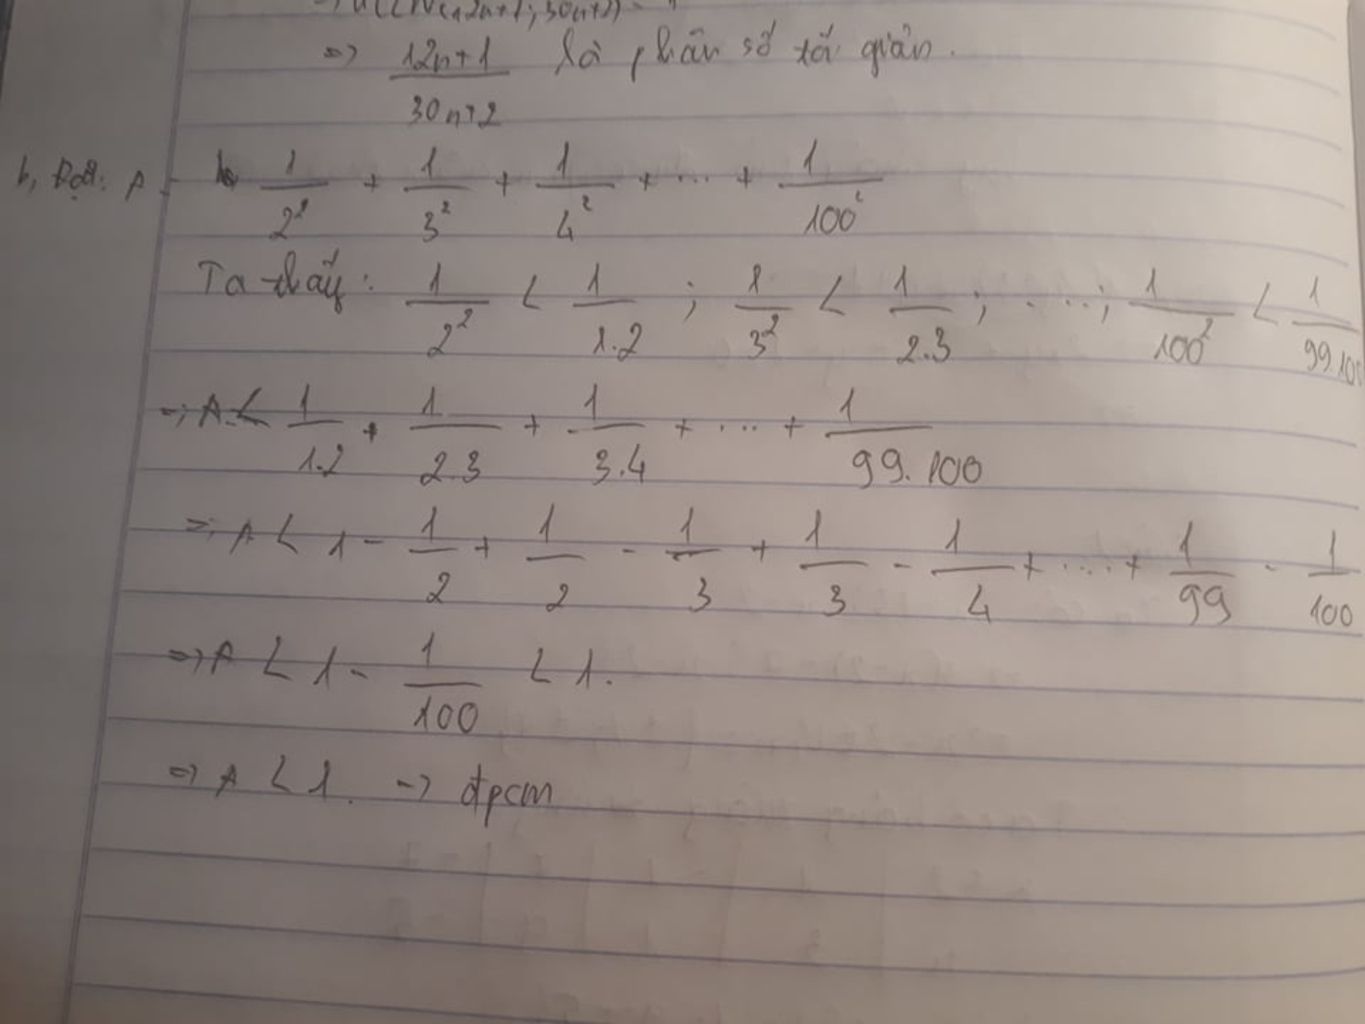 ⇒ ƯCLN(12n+1; 30n+2) =
⇒ 12n+1/30n+2 là phân số tối giản.
b, Đặt: A = 1/2² + 1/3² + 1/4² + ... + 1/100²
Ta thấy: 1/2² < 1/1.2 ; 1/3² < 1/2.3 ; ...; 1/100² < 1/99.100
⇒ A < 1/1.2 + 1/2.3 + 1/3.4 + ... + 1/99.100
⇒ A < 1 - 1/2 + 1/2 - 1/3 + 1/3 - 1/4 + ... + 1/99 - 1/100
⇒ A < 1 - 1/100 < 1.
⇒ A < 1. → đpcm